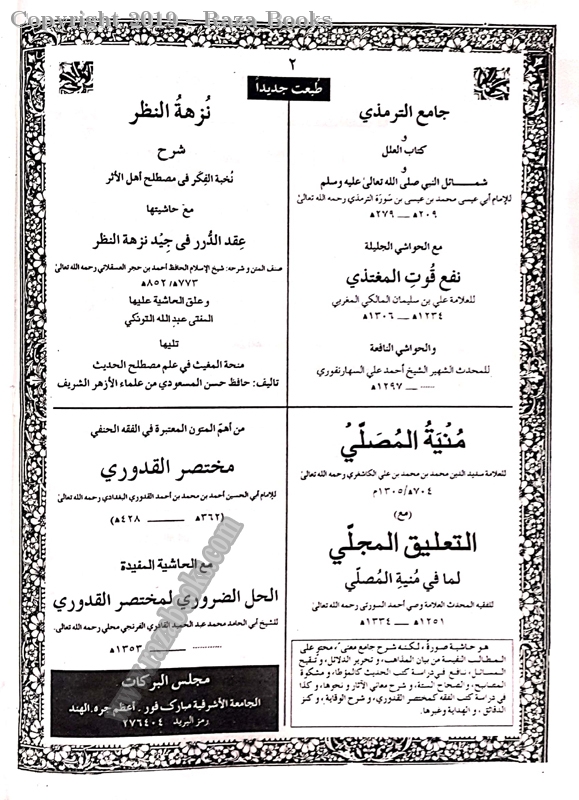 Copyright 2019 - Raza Books
٢
طُبعت جديداً
جامع الترمذي
و
كتاب العلل
و
شمائل النبي صلى الله تعالىٰ عليه وسلم
للإمام أبي عيسى محمد بن عيسى بن سَورَة الترمذي رحمه الله تعالىٰ
٢٠٩ه ـــ ٢٧٩ه
مع الحواشي الجليلة
نفع قُوتِ المغتذي
للعلامة علي بن سليمان المالكي المغربي
١٢٣٤ه ـــ ١٣٠٦ه
والحواشي النافعة
للمحدث الشهير الشيخ أحمد علي السهارنفوري
...... ـــ ١٢٩٧ه
نُزهةُ النظر
شرح
نُخبة الفِكَر فى مصطلح أهل الأثر
مع حاشيتها
عِقد الدُّرر فى جِيْد نزهة النظر
صنف المتن و شرحه: شيخ الإسلام الحافظ أحمد بن حجر العسقلاني رحمه الله تعالىٰ
٧٧٣ه/ ٨٥٢ه
و علق الحاشية عليها
المفتى عبد الله التونكي
تليها
منحة المغيث في علم مصطلح الحديث
تاليف: حافظ حسن المسعودي من علماء الأزهر الشريف
مُنْيَةُ المُصَلِّيْ
للعلامة سديد الدين محمد بن محمد بن علي الكاشغري رحمه الله تعالىٰ
٧٠٤ه/١٣٠٥م
(مع)
التعليق المجلّي
لما في مُنية المُصلّي
للفقيه المحدث العلامة وصي أحمد السورتي رحمه الله تعالىٰ
١٢٥١ه ـــ ١٣٣٤ه
هو حاشية صورةً، لكنه شرح جامع معنىً، محتو على
المطالب النفيسة من بيان المذاهب، و تحرير الدلائل، و تنقيح
المسائل، نافع في دراسة كتب الحديث كالمؤطا، و مشكوة
المصابيح، و الصحاح الستة، و شرح معاني الآثار و نحوها، و كذا
في دراسة كتب الفقه كمختصر القدوري، و شرح الوقاية، و كنز
الدقائق، و الهداية وغيرها.
من أهمّ المتون المعتبرة في الفقه الحنفي
مختصر القدوري
للإمام أبي الحسين أحمد بن محمد بن أحمد القدوري البغدادي رحمه الله تعالىٰ
(٣٦٢ه ـــ ٤٢٨ه)
مع الحاشية المفيدة
الحل الضروري لمختصر القدوري
للشيخ أبي الحامد محمد عبد الحميد القادري الفرنجي محلي رحمه الله تعالىٰ
...... ـــ ١٣٥٣ه
مجلس البركات
الجامعة الأشرفية مباركفور۔ أعظم جره۔ الهند
رمز البريد ٢٧٦٤٠٤
www.razabooks.com